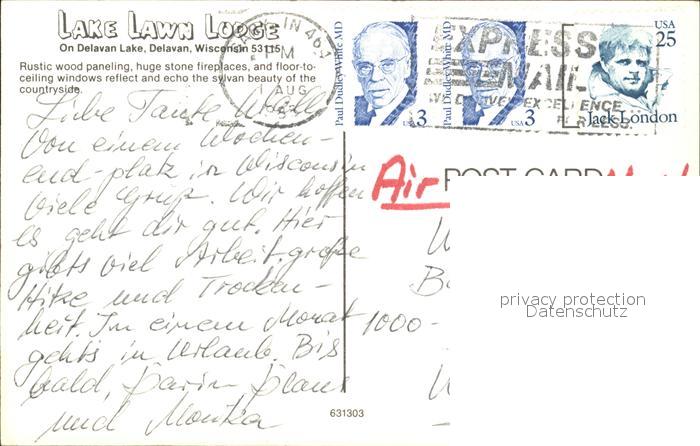 LAKE LAWN LODGE
On Delavan Lake, Delavan, Wisconsin 53115
Rustic wood paneling, huge stone fireplaces, and floor-to-
ceiling windows reflect and echo the sylvan beauty of the
countryside.
Liebe Tante
Von einem Wochen-
end-platz in Wisconsin
viele Grüße. Wir hoffen
es geht dir gut. Hier
gibts viel Arbeit, große
Hitze und Trocken-
heit. In einem Monat
gehts in Urlaub. Bis
bald,
und Monika
IN 461
PM
1 AUG
Paul Dudley White MD
USA 3
Paul Dudley White MD
USA 3
USA
25
Jack London
EXPRESS
MAIL
EXCELLENCE
FOR LESS.
Air POST CARD
1000-
privacy protection
Datenschutz
631303